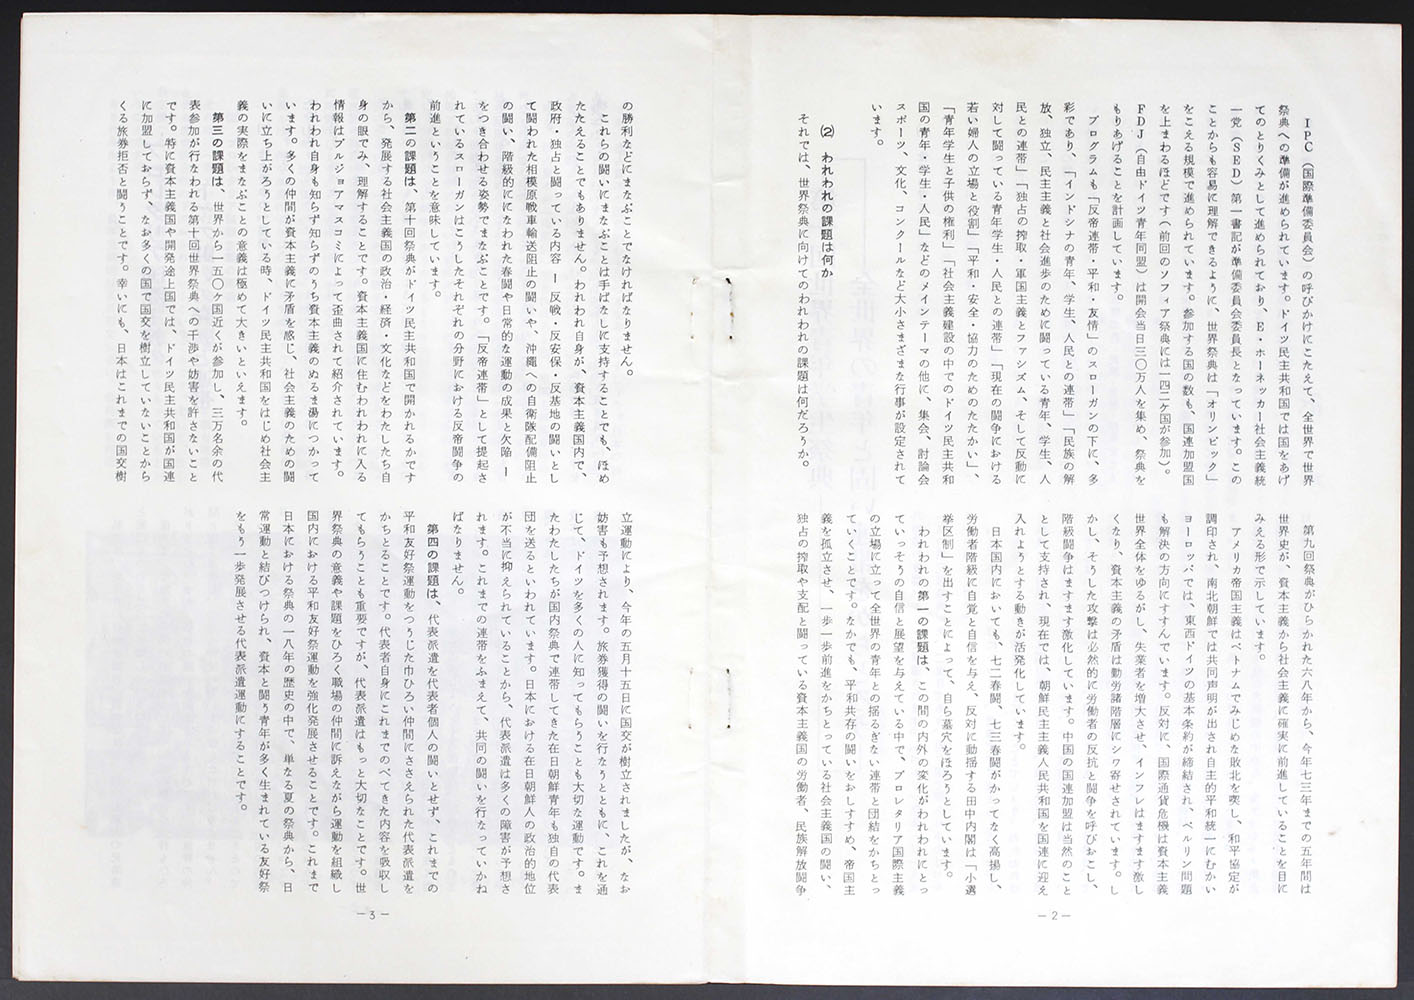 IPC（国際準備委員会）の呼びかけにこたえて、全世界で世界
祭典への準備が進められています。ドイツ民主共和国では国をあげ
てのとりくみとして進められており、E・ホーネッカー社会主義統
一党（SED）第一書記が準備委員会委員長となっています。この
ことからも容易に理解できるように、世界祭典は「オリンピック」
をこえる規模で進められています。参加する国の数も、国連加盟国
を上まわるほどです（前回のソフィア祭典には一四二ヶ国が参加）。
FDJ（自由ドイツ青年同盟）は開会当日三〇万人を集め、祭典を
もりあげることを計画しています。
プログラムも「反帝連帯・平和・友情」のスローガンの下に、多
彩であり、「インドシナの青年、学生、人民との連帯」「民族の解
放、独立、民主主義と社会進歩のために闘っている青年、学生、人
民との連帯」「独占の搾取・軍国主義とファシズム、そして反動に
対して闘っている青年学生・人民との連帯」「現在の闘争における
若い婦人の立場と役割」「平和・安全・協力のためのたたかい」、
「青年学生と子供の権利」「社会主義建設の中でのドイツ民主共和
国の青年・学生・人民」などのメインテーマの他に、集会、討論会
スポーツ、文化、コンクールなど大小さまざまな行事が設定されて
います。
(2) われわれの課題は何か
それでは、世界祭典に向けてのわれわれの課題は何だろうか。
第九回祭典がひらかれた六八年から、今年七三年までの五年間は
世界史が、資本主義から社会主義に確実に前進していることを目に
みえる形で示しています。
アメリカ帝国主義はベトナムでみじめな敗北を喫し、和平協定が
調印され、南北朝鮮では共同声明が出され自主的平和統一にむかい
ヨーロッパでは、東西ドイツの基本条約が締結され、ベルリン問題
も解決の方向にすすんでいます。反対に、国際通貨危機は資本主義
世界全体をゆるがし、失業者を増大させ、インフレはますます激し
くなり、資本主義の矛盾は勤労諸階層にシワ寄せされています。し
かし、そうした攻撃は必然的に労働者の反抗と闘争を呼びおこし、
階級闘争はますます激化しています。中国の国連加盟は当然のこと
として支持され、現在では、朝鮮民主主義人民共和国を国連に迎え
入れようとする動きが活発化しています。
日本国内においても、七二春闘、七三春闘がかってなく高揚し、
労働者階級に自覚と自信を与え、反対に動揺する田中内閣は「小選
挙区制」を出すことによって、自ら墓穴をほろうとしています。
われわれの第一の課題は、この間の内外の変化がわれわれにとっ
ていっそうの自信と展望を与えている中で、プロレタリア国際主義
の立場に立って全世界の青年との揺るぎない連帯と団結をかちとっ
ていくことです。なかでも、平和共存の闘いをおしすすめ、帝国主
義を孤立させ、一歩一歩前進をかちとっている社会主義国の闘い、
独占の搾取や支配と闘っている資本主義国の労働者、民族解放闘争
―2―
の勝利などにまなぶことでなければなりません。
これらの闘いにまなぶことは手ばなしに支持することでも、ほめ
たたえることでもありません。われわれ自身が、資本主義国内で、
政府・独占と闘っている内容 ― 反戦・反安保・反基地の闘いとし
て闘われた相模原戦車輸送阻止の闘いや、沖縄への自衛隊配備阻止
の闘い、階級的ににまなわれた春闘や日常的な運動の成果と欠陥 ―
をつき合わせる姿勢でまなぶことです。「反帝連帯」として提起さ
れているスローガンはこうしたそれぞれの分野における反帝闘争の
前進ということを意味しています。
第二の課題は、第十回祭典がドイツ民主共和国で開かれるかです
から、発展する社会主義国の政治・経済・文化などをわたしたち自
身の眼でみ、理解することです。資本主義国に住むわれわれに入る
情報はブルジョアマスコミによって歪曲されて紹介されています。
われわれ自身も知らず知らずのうち資本主義のぬるま湯につかって
います。多くの仲間が資本主義に矛盾を感じ、社会主義のための闘
いに立ち上がろうとしている時、ドイツ民主共和国をはじめ社会主
義の実際をまなぶことの意義は極めて大きいといえます。
第三の課題は、世界から一五〇ヶ国近くが参加し、三万名余の代
表参加が行なわれる第十回世界祭典への干渉や妨害を許さないこと
です。特に資本主義国や開発途上国では、ドイツ民主共和国が国連
に加盟しておらず、なお多くの国で国交を樹立していないことから
くる旅券拒否と闘うことです。幸いにも、日本はこれまでの国交樹
立運動により、今年の五月十五日に国交が樹立されましたが、なお
妨害も予想されます。旅券獲得の闘いを行なうとともに、これを通
じて、ドイツを多くの人に知ってもらうことも大切な運動です。ま
たわたしたちが国内祭典で連帯してきた在日朝鮮青年も独自の代表
団を送るといわれています。日本における在日朝鮮人の政治的地位
が不当に抑えられていることから、代表派遣は多くの障害が予想さ
れます。これまでの連帯をふまえて、共同の闘いを行なっていかね
ばなりません。
第四の課題は、代表派遣を代表者個人の闘いとせず、これまでの
平和友好祭運動をつうじた巾ひろい仲間にささえられた代表派遣を
かちとることです。代表者自身にこれまでのべてきた内容を吸収し
てもらうことも重要ですが、代表派遣はもっと大切なことです。世
界祭典の意義や課題をひろく職場の仲間に訴えながら運動を組織し
国内における平和友好祭運動を強化発展させることです。これまで
日本における祭典の一八年の歴史の中で、単なる夏の祭典から、日
常運動と結びつけられ、資本と闘う青年が多く生まれている友好祭
をもう一歩発展させる代表派遣運動にすることです。
―3―